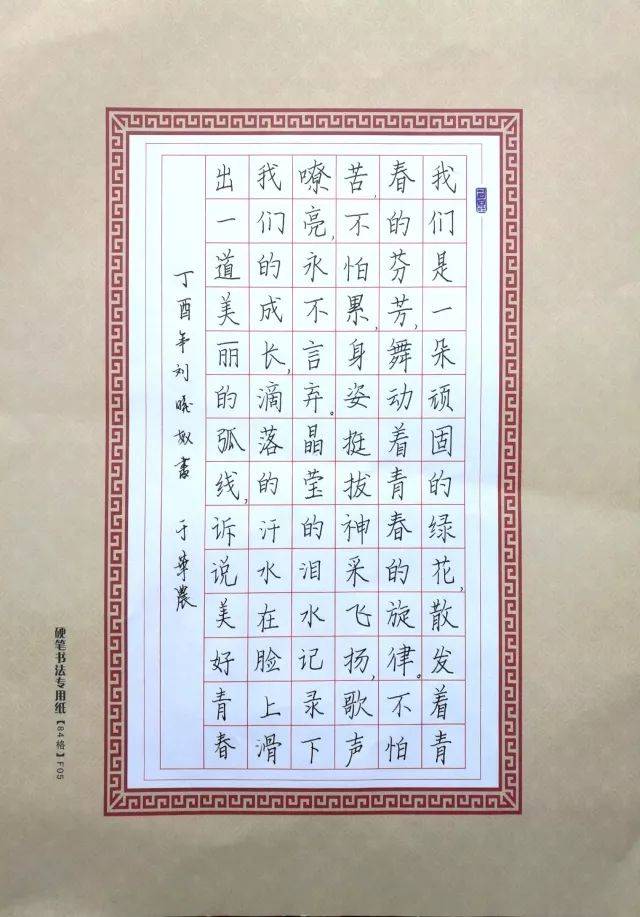 我们是一朵顽固的绿花,散发着青
春的芬芳,舞动着青春的旋律。不怕
苦,不怕累,身姿挺拔神采飞扬,歌声
嘹亮,永不言弃。晶莹的泪水记录下
我们的成长,滴落的汗水在脸上滑
出一道美丽的弧线,诉说美好青春
丁酉年刘 书 于华农
硬笔书法专用纸【84格】F05